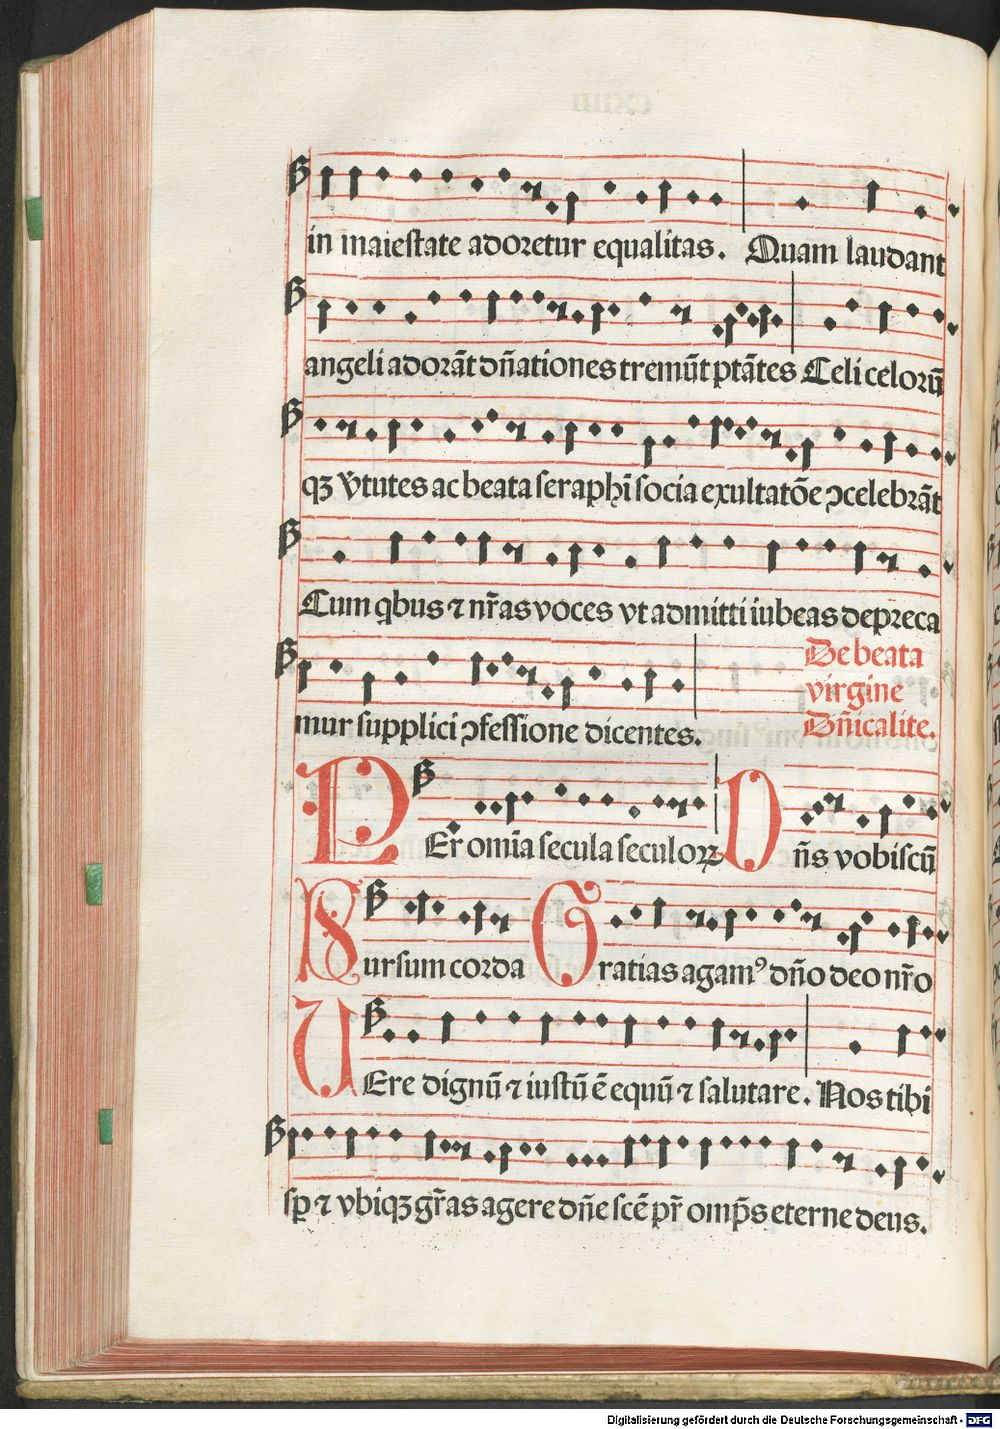 in maiestate adoretur equalitas. Quam laudant
angeli adorãt dñationes tremũt ptãtes Celi celorũ
qꝫ v̾tutes ac beata seraphĩ socia exultatõe ꝯcelebrãt
Cum qbus ⁊ nr̃as voces vt admitti iubeas depreca
mur supplici ꝯfessione dicentes.
De beata
virgine
Dñicalite.
PEr om̃ia secula seculoꝝ Dñs vobiscũ
Sursum corda Gratias agamꝰ dño deo nr̃o
UEre dignũ ⁊ iustũ ẽ equũ ⁊ salutare. Nos tibi
sp̃ ⁊ vbiqꝫ gr̃as agere dñe scẽ pr̃ omp̃s eterne deus.
Digitalisierung gefördert durch die Deutsche Forschungsgemeinschaft - DFG